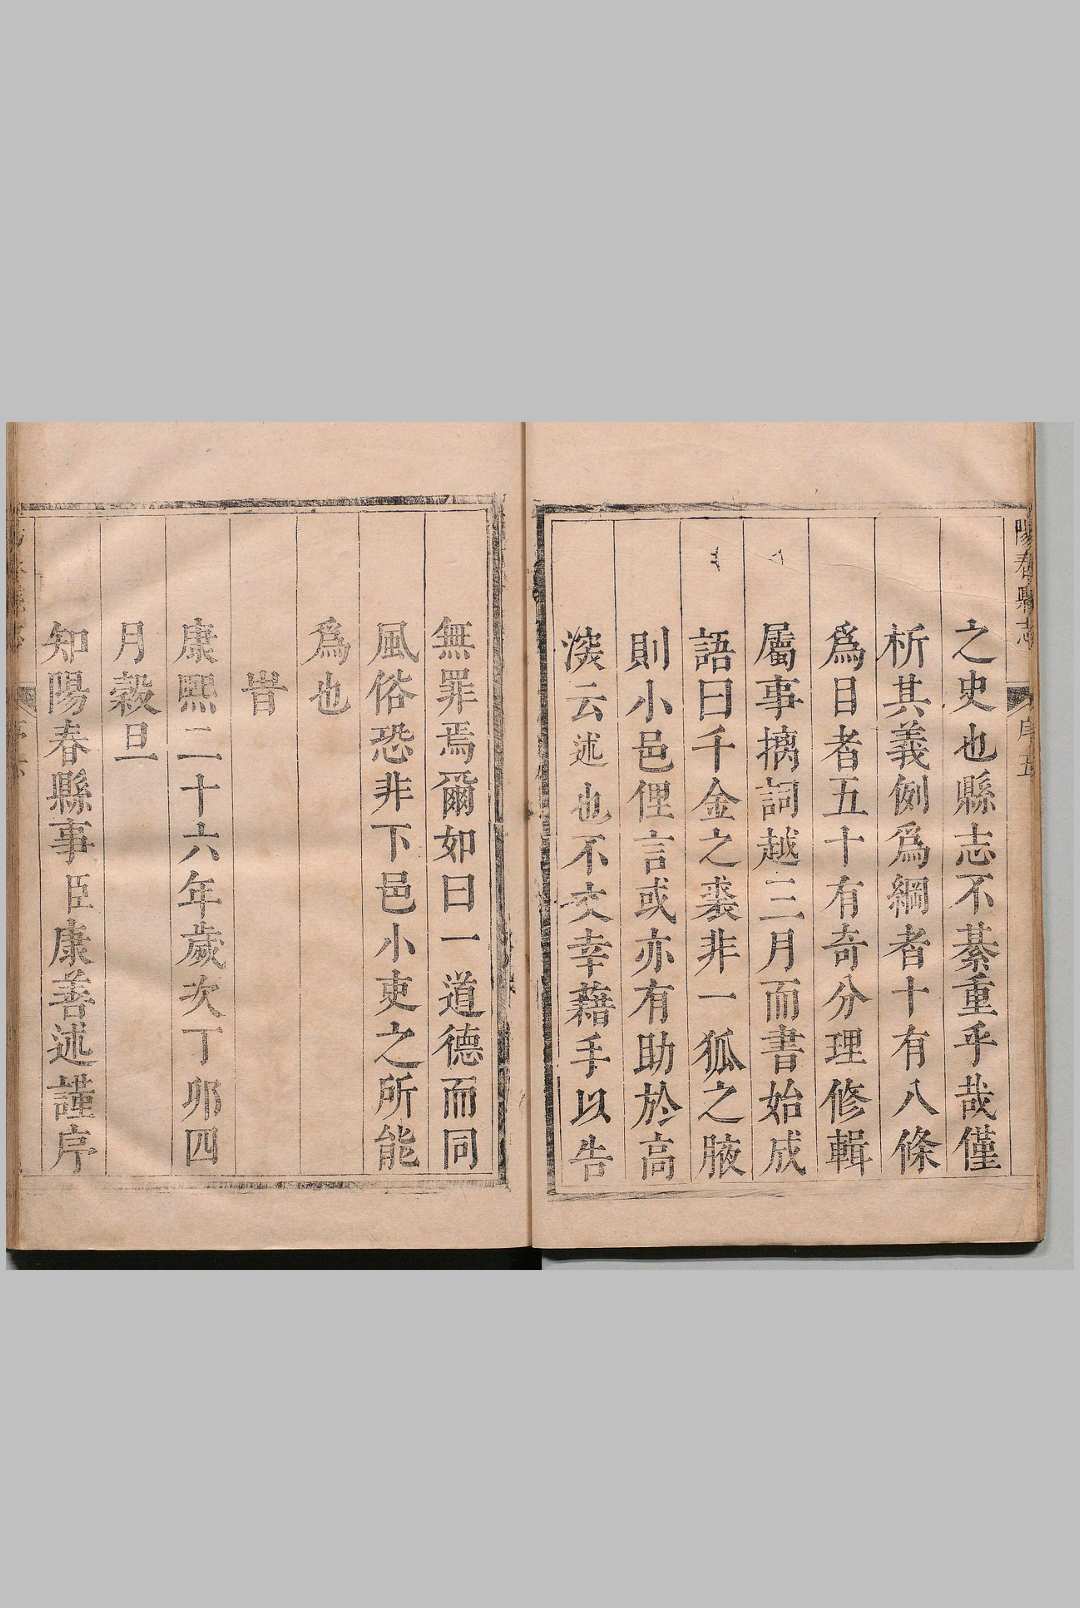 陽春縣志
序五
之史也縣志不綦重乎哉僅
析其義例爲綱者十有八條
爲目者五十有奇分理修輯
屬事摛詞越三月而書始成
語曰千金之裘非一狐之腋
則小邑俚言或亦有助於高
深云述也不文幸藉手以告
無罪焉爾如曰一道德而同
風俗恐非下邑小吏之所能
爲也
旹
康熙二十六年歲次丁卯四
月穀旦
知陽春縣事臣康善述謹序